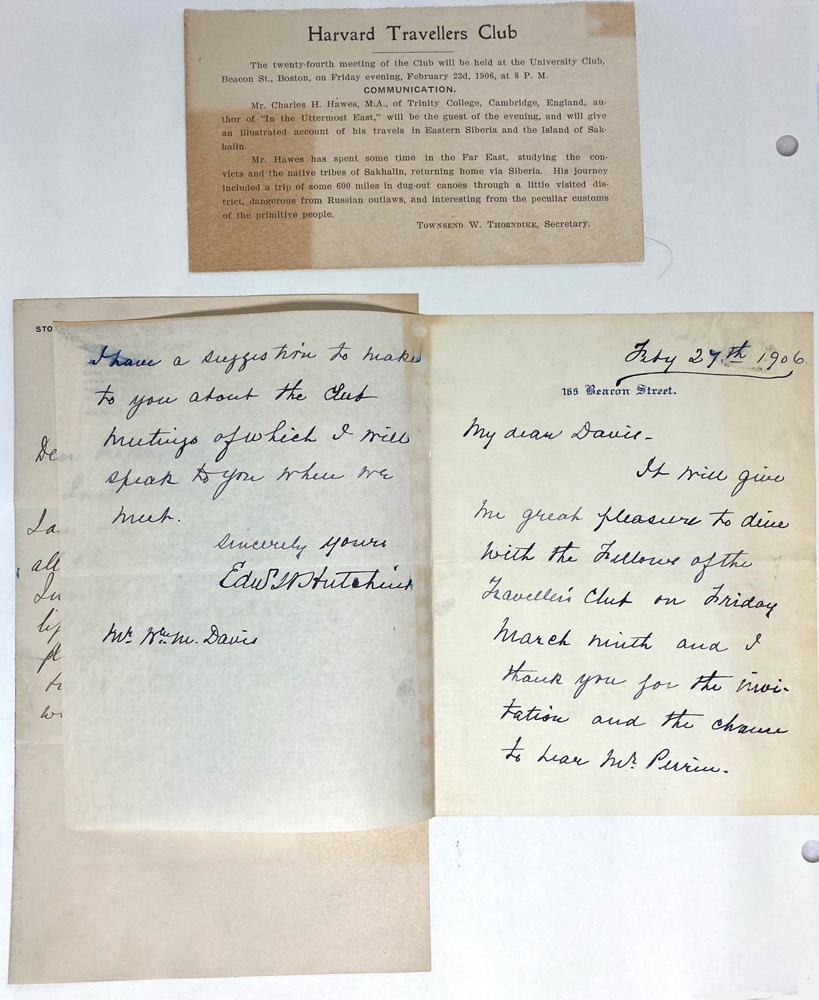 Harvard Travellers Club
The twenty-fourth meeting of the Club will be held at the University Club,
Beacon St., Boston, on Friday evening, February 23d, 1906, at 8 P. M.
COMMUNICATION.
Mr. Charles H. Hawes, M.A., of Trinity College, Cambridge, England, au-
thor of "In the Uttermost East," will be the guest of the evening, and will give
an illustrated account of his travels in Eastern Siberia and the Island of Sak-
halin.
Mr. Hawes has spent some time in the Far East, studying the con-
victs and the native tribes of Sakhalin, returning home via Siberia. His journey
included a trip of some 600 miles in dug-out canoes through a little visited dis-
trict, dangerous from Russian outlaws, and interesting from the peculiar customs
of the primitive people.
Townsend W. Thorndike, Secretary.
STO
De
La
all
In
lif
pl
to
wi
I have a suggestion to make
to you about the Club
meetings of which I will
speak to you when we
meet.
Sincerely yours
Edw. Hutchins
Mr. Wm. M. Davis
Feby 27th 1906
166 Beacon Street.
My dear Davis-
It will give
me great pleasure to dine
with the Fellows of the
Traveller's Club on Friday
March ninth and I
thank you for the invi-
tation and the chance
to hear Mr. Perrin.